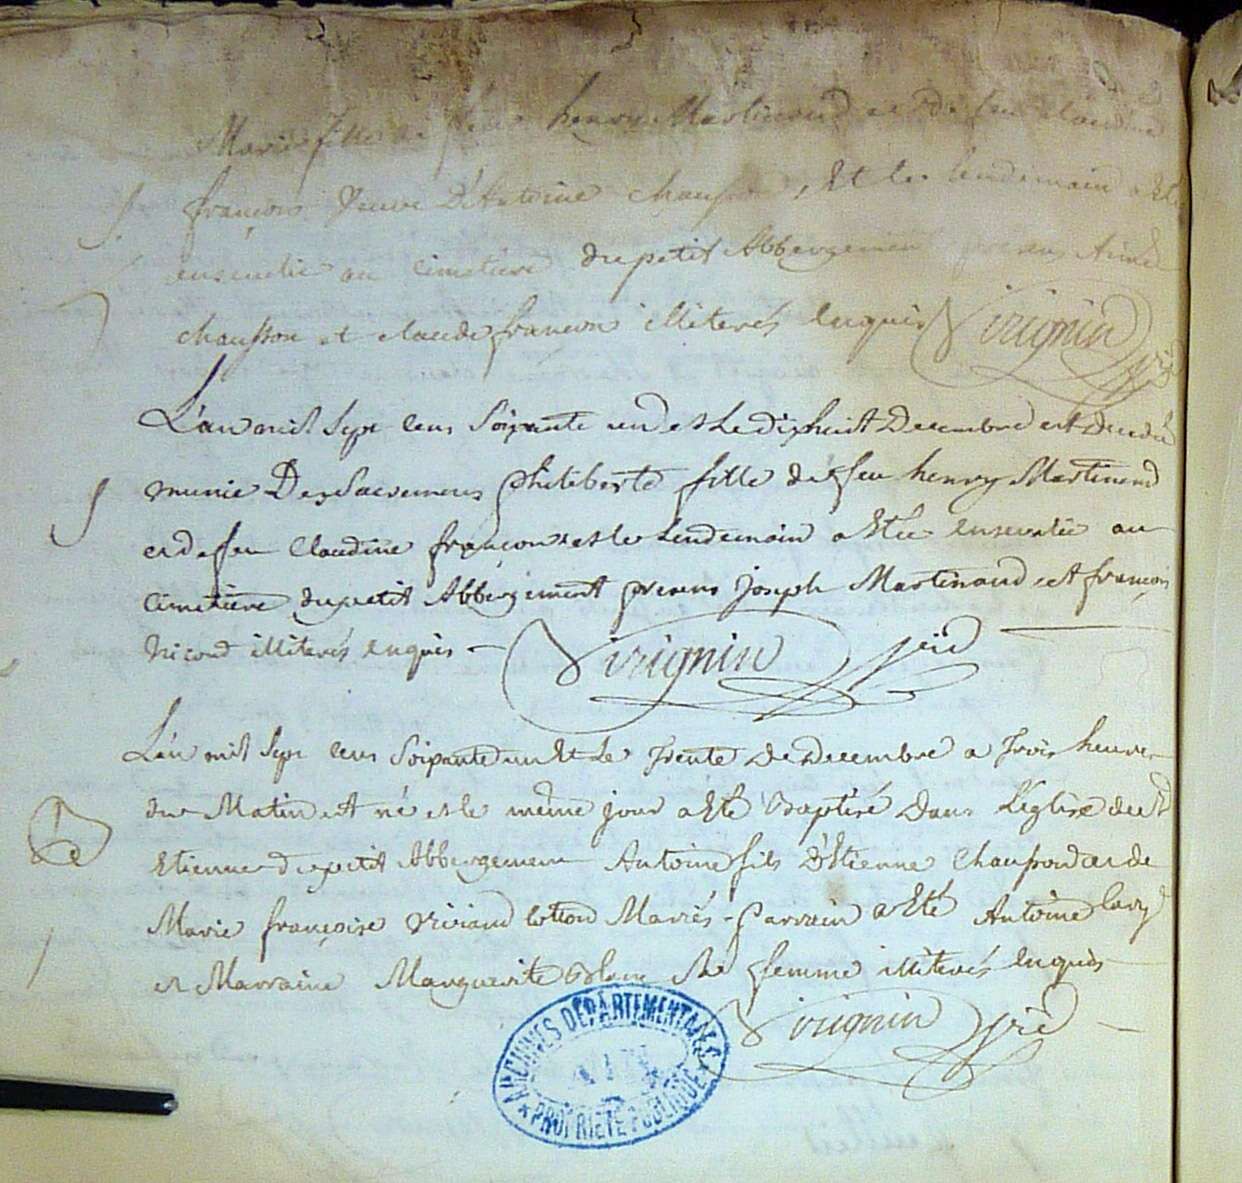 Marie fille de feu henry Martinand et de feu Claudine
françon veuve D'Antoine chausson, Et le lendemain a Eté
ensevelie au cimetière du petit Abbergement presens Aimé
chausson et claude françon illiterés Enquis Virignin
L'an mil Sept Cens Soixante un et Le dixhuit Decembre est decedée
munie Des Sacremens philiberte fille de feu henry Martinand
et de feu Claudine françon et le Lendemain a Eté Ensevelie au
Cimetière du petit Abbergement presens Joseph Martinand et françois
Nicond illiterés Enquis Virignin
L'an mil Sept Cens Soixante un Et Le Trente De Decembre a Trois heures
du Matin est né et le même jour a Eté Baptisé Dans L'eglise de St
Etienne du petit Abbergement Antoine fils D'Etienne Chausson et de
Marie françoise Cotton Mariés Parrain a Eté Antoine
et Marraine Marguerite femme illiterés Enquis
Virignin
ARCHIVES DÉPARTEMENTALES
AIN
PROPRIÉTÉ PUBLIQUE